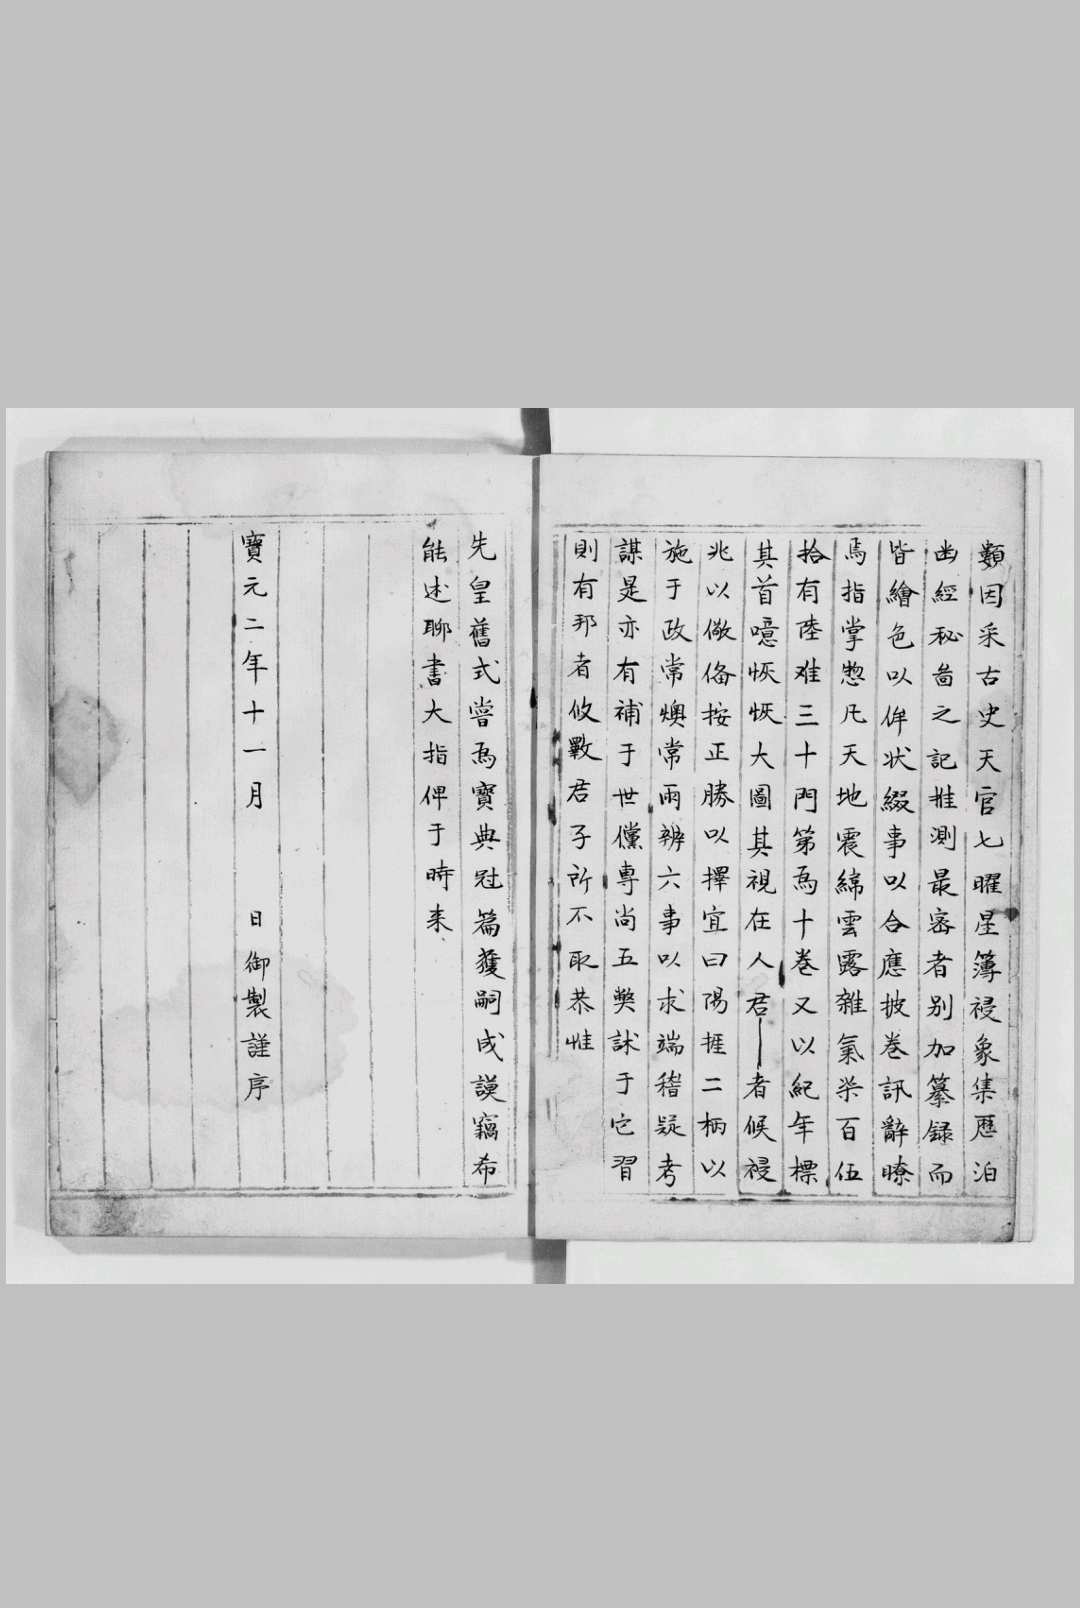 類因采古史天官七曜星簿祲象集厯洎
幽經秘啚之記推測最密者别加纂録而
皆繪色以侔状綴事以合應披卷訊辭瞭
焉指掌惣凡天地震綿雲露雜氣柒百伍
拾有陸难三十門第為十卷又以紀年標
其首噫恢恢大圖其視在人君者候祲
兆以儆俻按正勝以擇宜曰陽捱二柄以
施于政常燠常雨辨六事以求端稽疑考
謀是亦有補于世儻專尚五獘訹于它習
則有邦者攸斁君子所不取恭惟
先皇舊式嘗為寳典冠篇獲嗣成謨竊希
能述聊書大指俾于時来
寳元二年十一月 日御製謹序